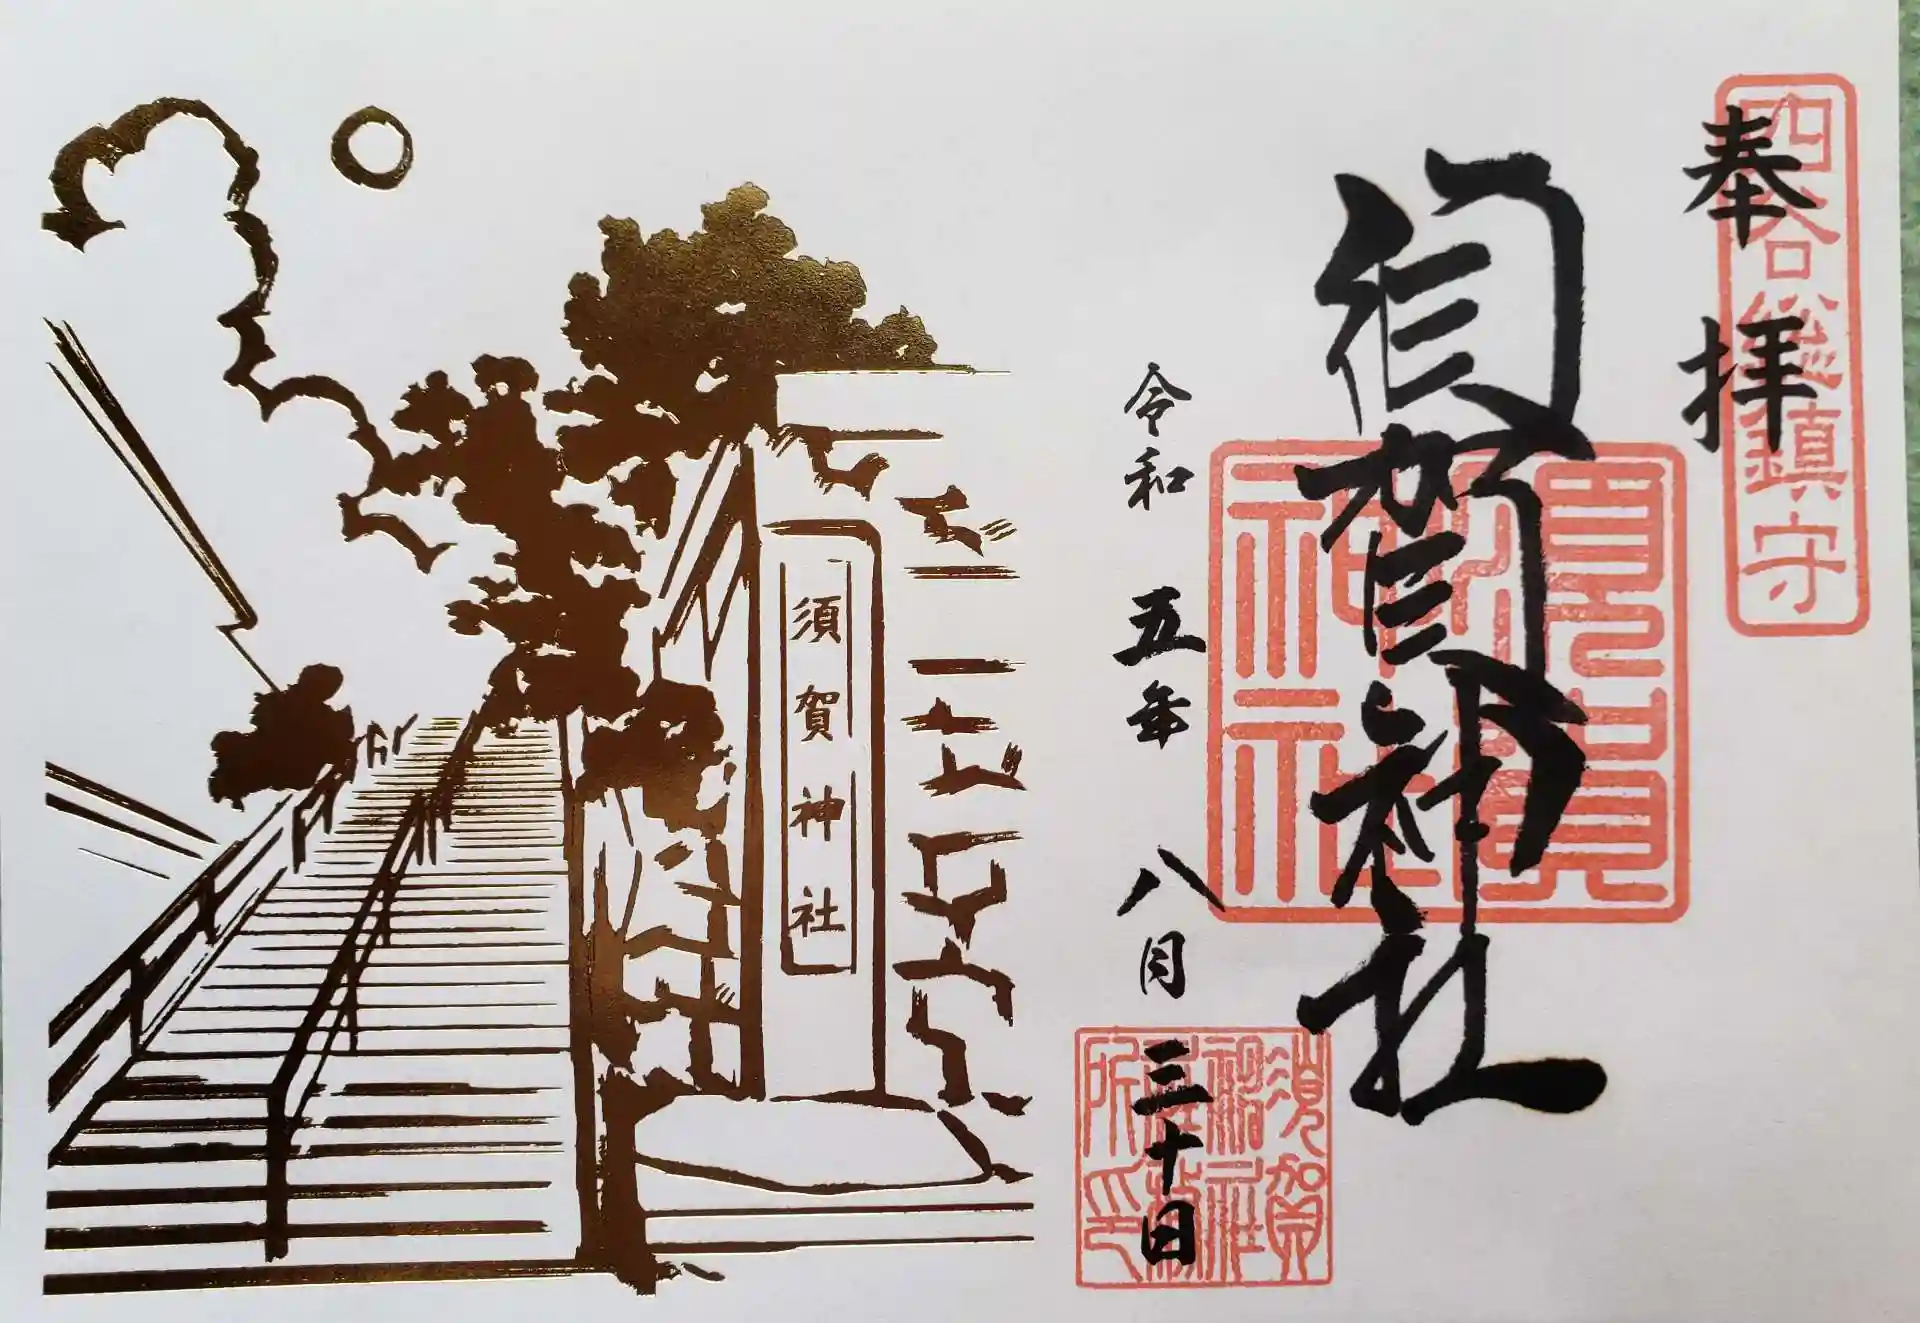 奉拝
四谷総鎮守
須賀神社
須賀神社
令和五年八月三十日
須賀神社社務所印
須賀神社